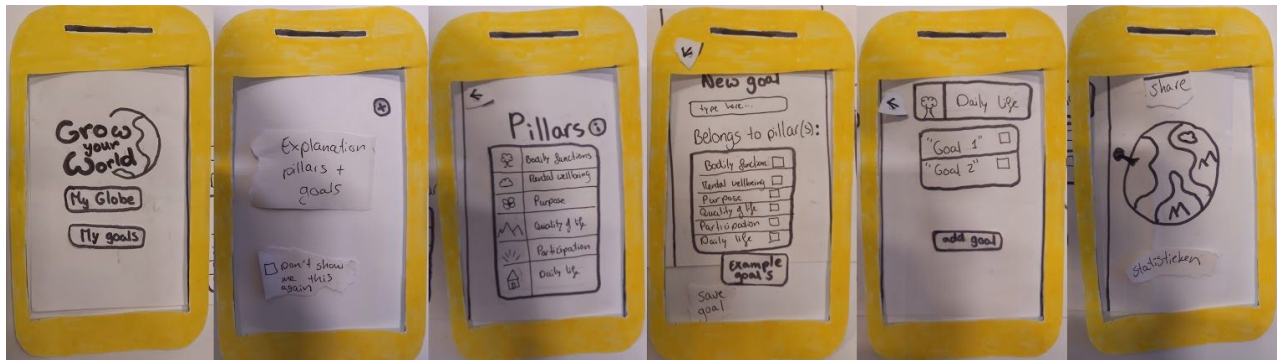 Grow
your
World
My Globe
My goals
Explanation
pillars +
goals
Don't show
me this
again
Pillars
Bodily functions
Mental wellbeing
Purpose
Quality of life
Participation
Daily life
New goal
type here...
Belongs to pillar(s):
Bodily functions
Mental wellbeing
Purpose
Quality of life
Participation
Daily life
Example
goals
save
goal
Daily life
"Goal 1"
"Goal 2"
add goal
share
statistieken